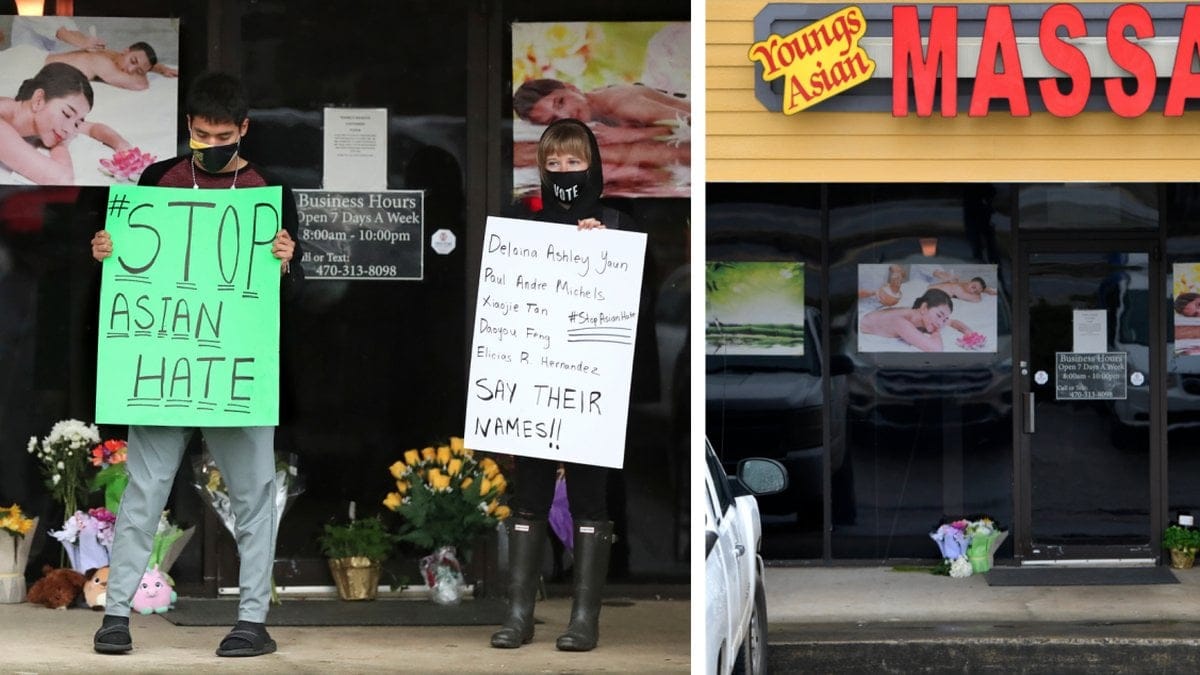 #STOP
ASIAN
HATE
VOTE
Business Hours
Open 7 Days A Week
8:00am - 10:00pm
or Text:
470-313-8098
Delaina Ashley Yaun
Paul Andre Michels
Xiaojie Tan
#StopAsianHate
Daoyou Feng
Elicias R. Hernandez
SAY THEIR
NAMES!!
Youngs
Asian
MASSA
Business Hours
Open 7 Days A Week
8:00am - 10:00pm
Call or Text:
470-313-8098